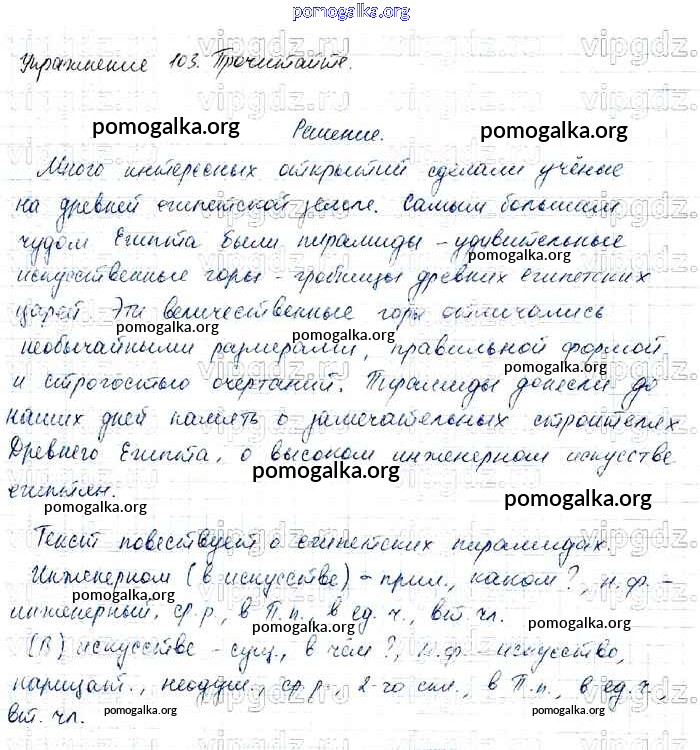 pomogalka.org
Упражнение 103. Прочитайте.
pomogalka.org Решение. pomogalka.org
Много интересных открытий сделали учёные
на древней египетской земле. Самым большим
чудом Египта были пирамиды – удивительные
pomogalka.org
искусственные горы – гробницы древних египетских
царей. Эти величественные горы отличались
pomogalka.org pomogalka.org pomogalka.org
необычайными размерами, правильной формой
pomogalka.org
и строгостью очертаний. Пирамиды донесли до
pomogalka.org
наших дней память о замечательных строителях
Древнего Египта, о высоком инженерном искусстве
pomogalka.org
египтян.
pomogalka.org
Текст повествует о египетских пирамидах.
pomogalka.org
Инженерном (в искусстве) – прил., каком?, н.ф. –
pomogalka.org
инженерный, ср.р., в П.п., в ед.ч., вт. чл.
pomogalka.org pomogalka.org
(В) искусстве – сущ., в чём?, н.ф. – искусство,
pomogalka.org
нарицат., неодуш., ср.р., 2-го скл., в П.п., в ед.ч.,
вт. чл.
pomogalka.org pomogalka.org